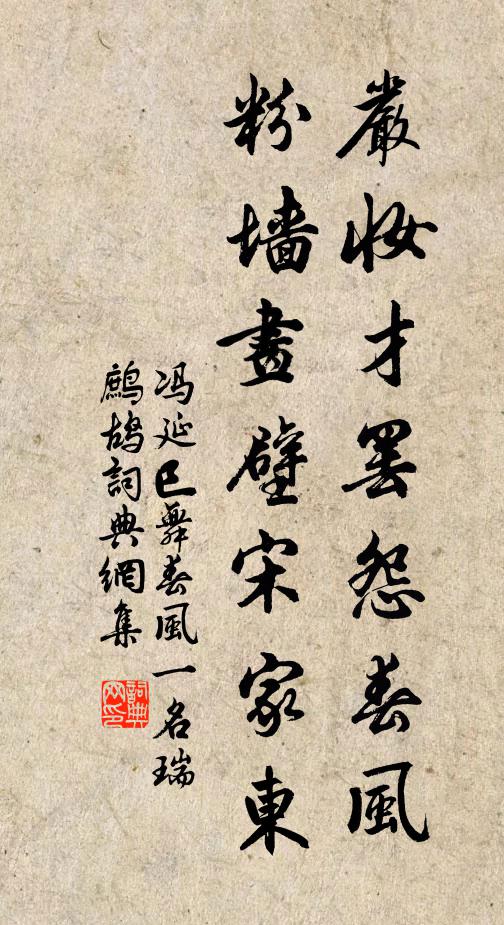 嚴妝才罷怨春風
粉墻畫壁宋家東
冯延巳舞春風一名瑞
鷓鴣詞典網集
詞典网印